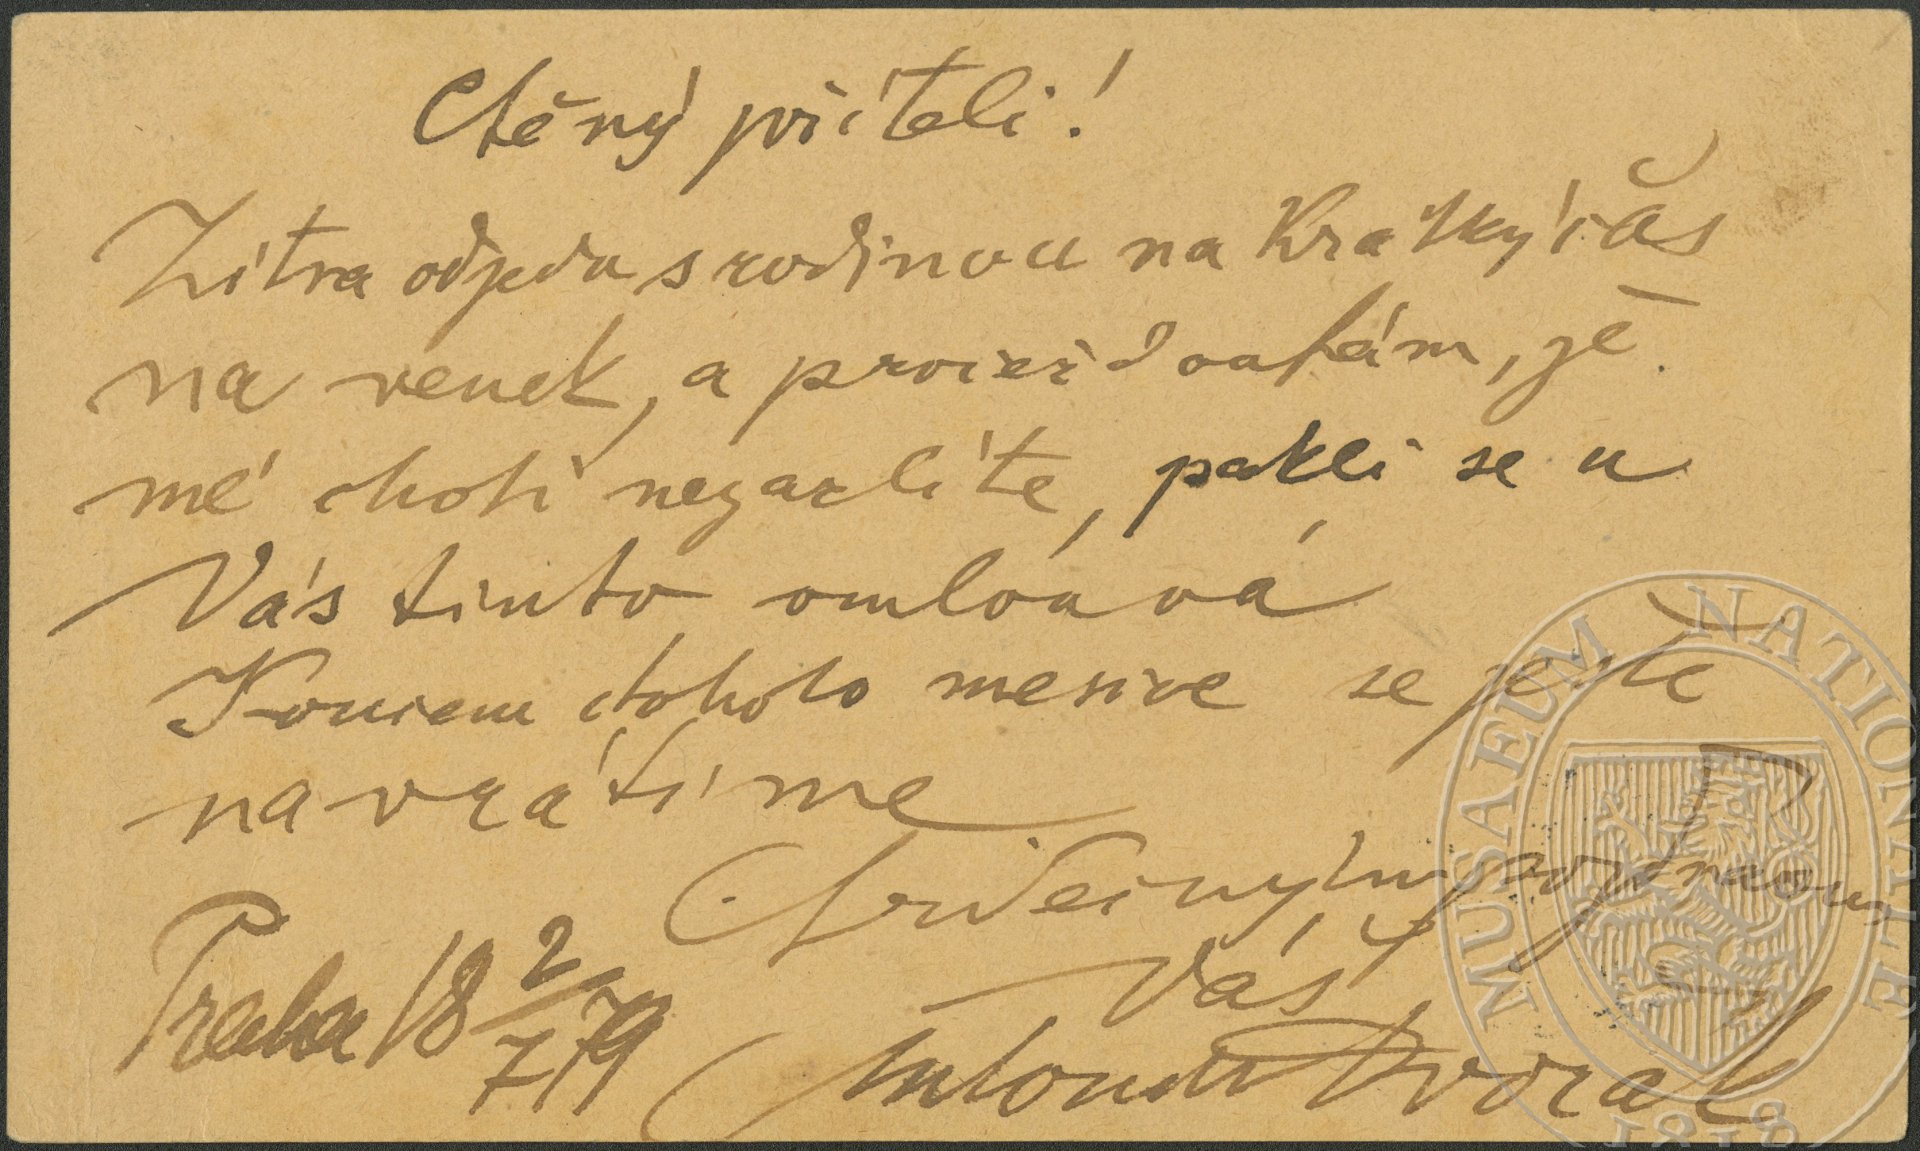 Ctěný příteli!
Zítra odjedu s rodinou na krátký čas
na venek, a prosím, že
mé choti nezazlíte, pakli se u
Vás tímto omlouvá
Koncem tohoto mesice se ješte
navrátíme
S srdečným pozdravem
Váš
Praha 18 2/7 79
Antonín Dvořák
MUSAEUM NATIONALE
1818